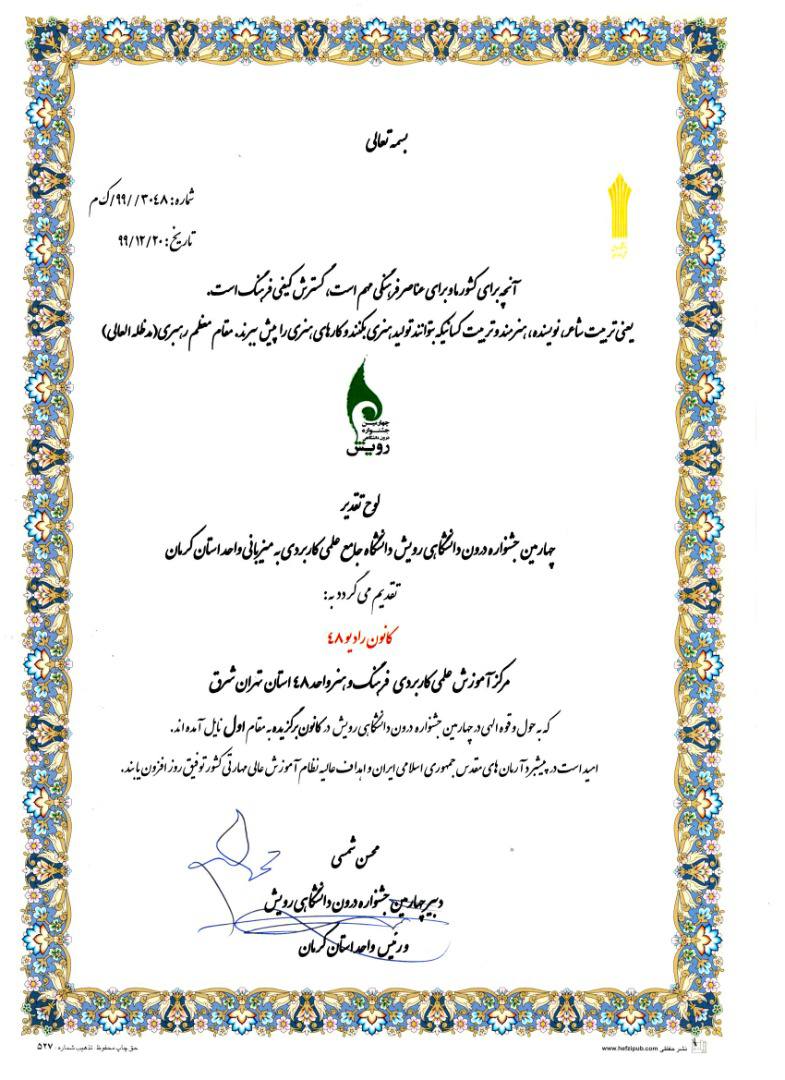 بسمه تعالی
شماره: ۳۰۴۸//۹۹/ک م
تاریخ: ۹۹/۱۲/۲۰
آنچه برای کشور ما و برای عناصر فرهنگی مهم است، گسترش کیفی فرهنگ است.
یعنی تربیت شاعر، نویسنده، هنرمند و تربیت کسانیکه بتوانند تولید هنری بکنند و کارهای هنری را پیش ببرند. مقام معظم رهبری(مدظله العالی)
چهارمین
جشنواره
درون دانشگاهی
رویش
لوح تقدیر
چهارمین جشنواره درون دانشگاهی رویش دانشگاه جامع علمی کاربردی به میزبانی واحد استان کرمان
تقدیم می گردد به:
کانون رادیو ۴۸
مرکز آموزش علمی کاربردی فرهنگ و هنر واحد ۴۸ استان تهران شرق
که به حول و قوه الهی در چهارمین جشنواره درون دانشگاهی رویش در کانون برگزیده به مقام اول نایل آمده اند.
امید است در پیشبرد آرمان های مقدس جمهوری اسلامی ایران و اهداف عالیه نظام آموزش عالی مهارتی کشور توفیق روز افزون یابند.
محسن شمسی
دبیر چهارمین جشنواره درون دانشگاهی رویش
و رئیس واحد استان کرمان
نشر حفظی www.hefzipub.com
حق چاپ محفوظ - تذهیب شماره ۵۲۷